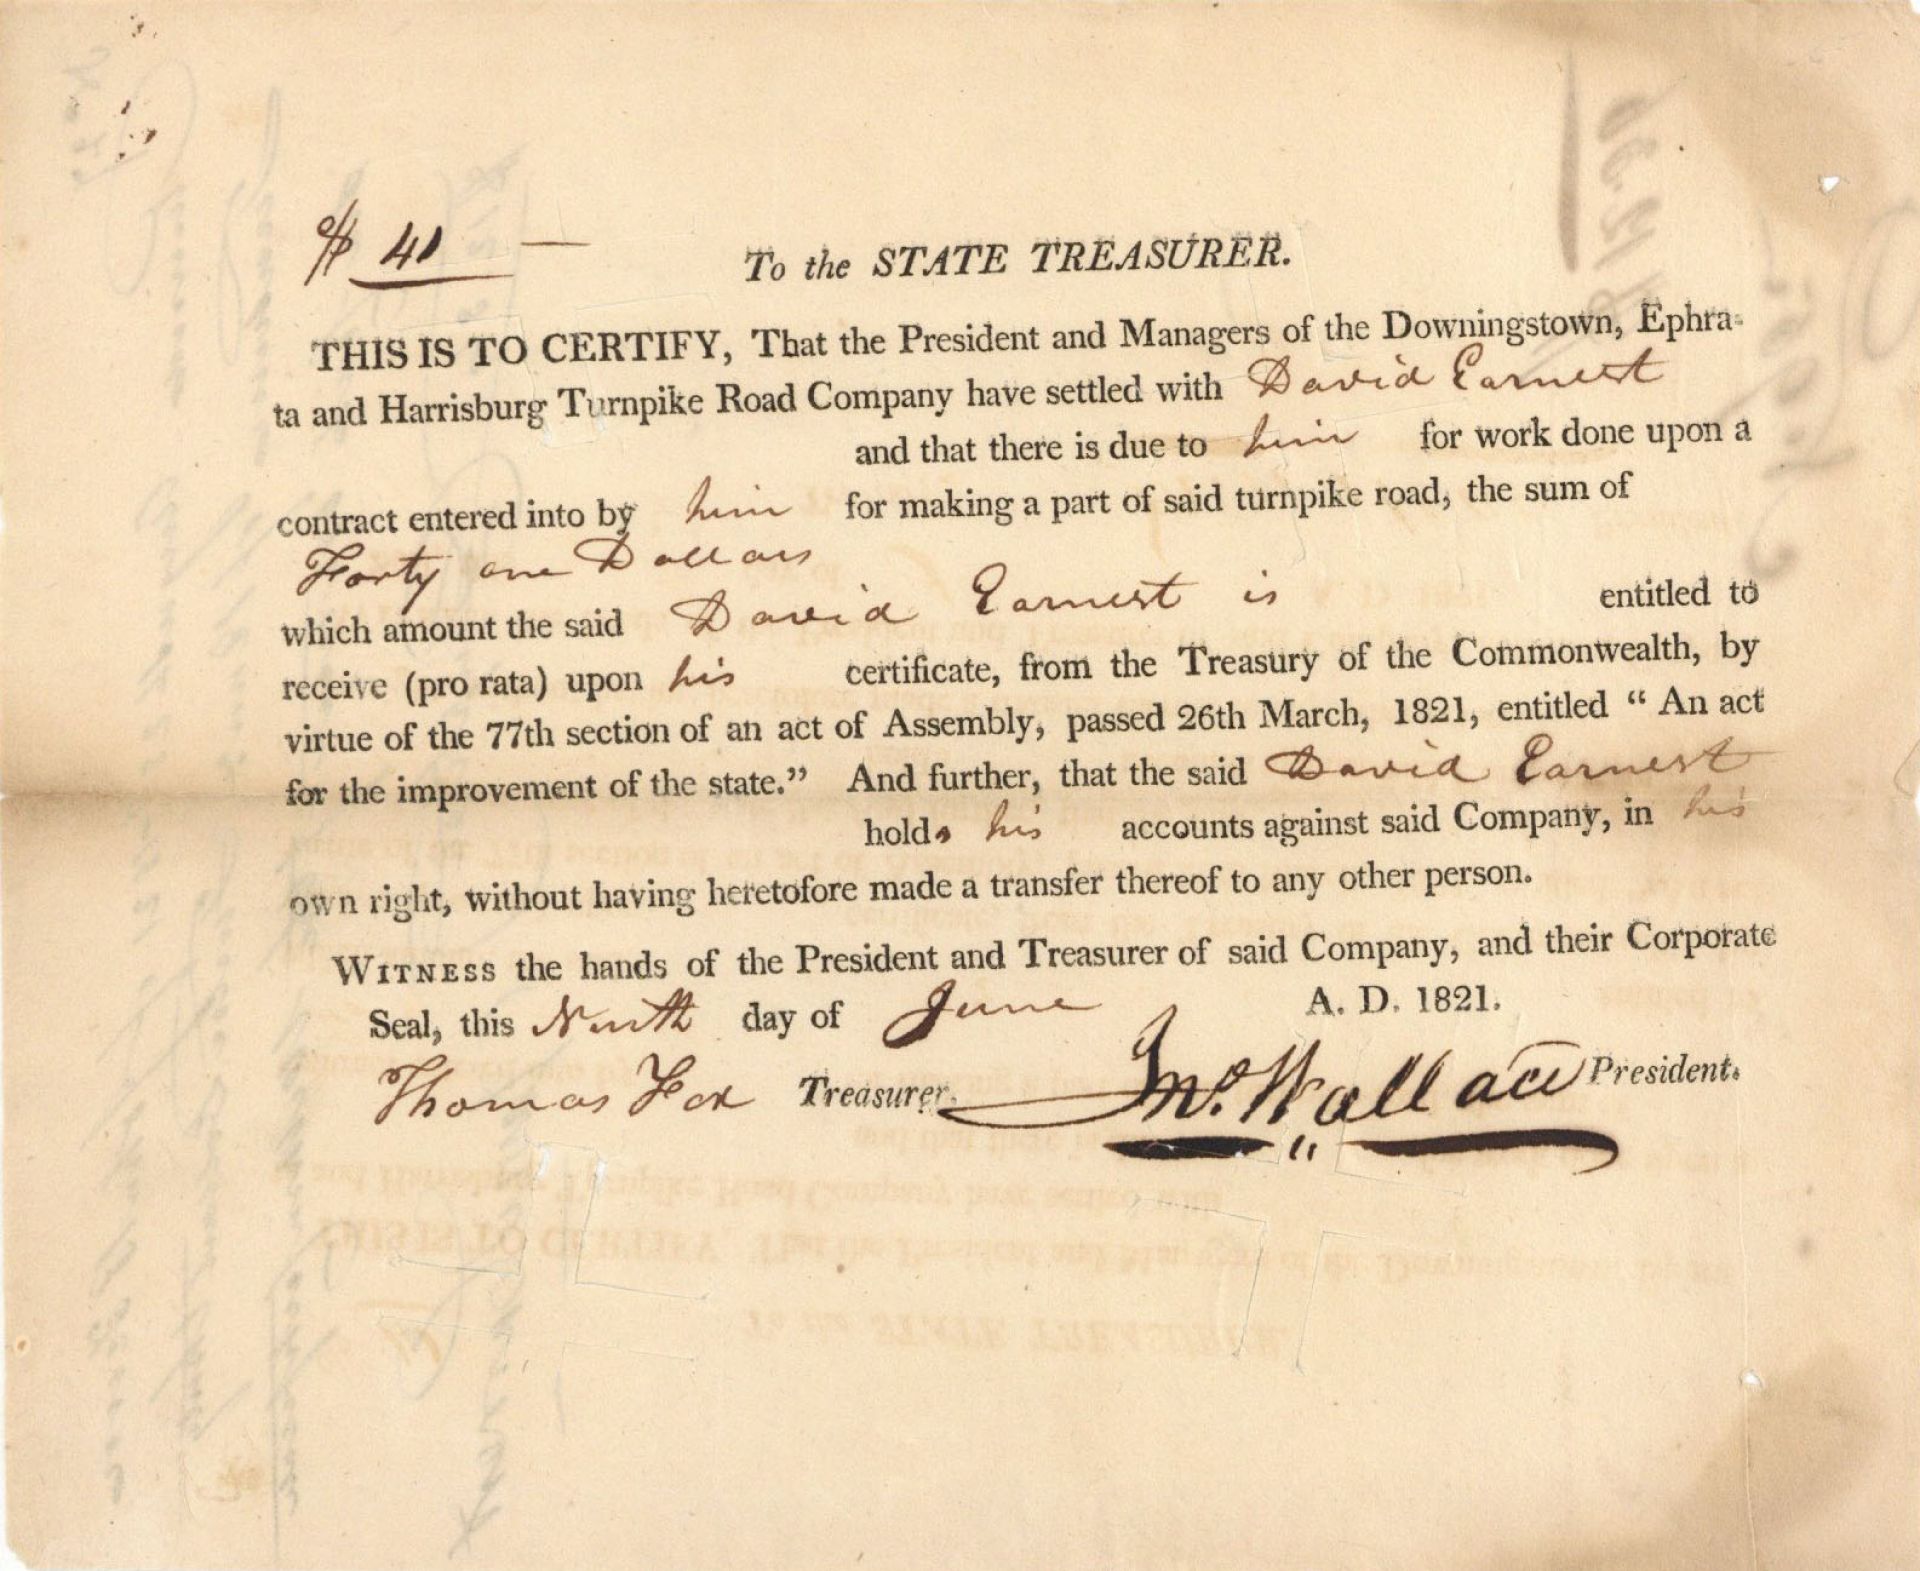 $ 41 —
To the STATE TREASURER.
THIS IS TO CERTIFY, That the President and Managers of the Downingstown, Ephra-
ta and Harrisburg Turnpike Road Company have settled with David Earnest
and that there is due to him for work done upon a
contract entered into by him for making a part of said turnpike road, the sum of
Forty one Dollars
which amount the said David Earnest is entitled to
receive (pro rata) upon his certificate, from the Treasury of the Commonwealth, by
virtue of the 77th section of an act of Assembly, passed 26th March, 1821, entitled “ An act
for the improvement of the state.” And further, that the said David Earnest
holds his accounts against said Company, in his
own right, without having heretofore made a transfer thereof to any other person.
WITNESS the hands of the President and Treasurer of said Company, and their Corporate
Seal, this Ninth day of June A. D. 1821.
Thomas Fox Treasurer. Jno. Wallace President.